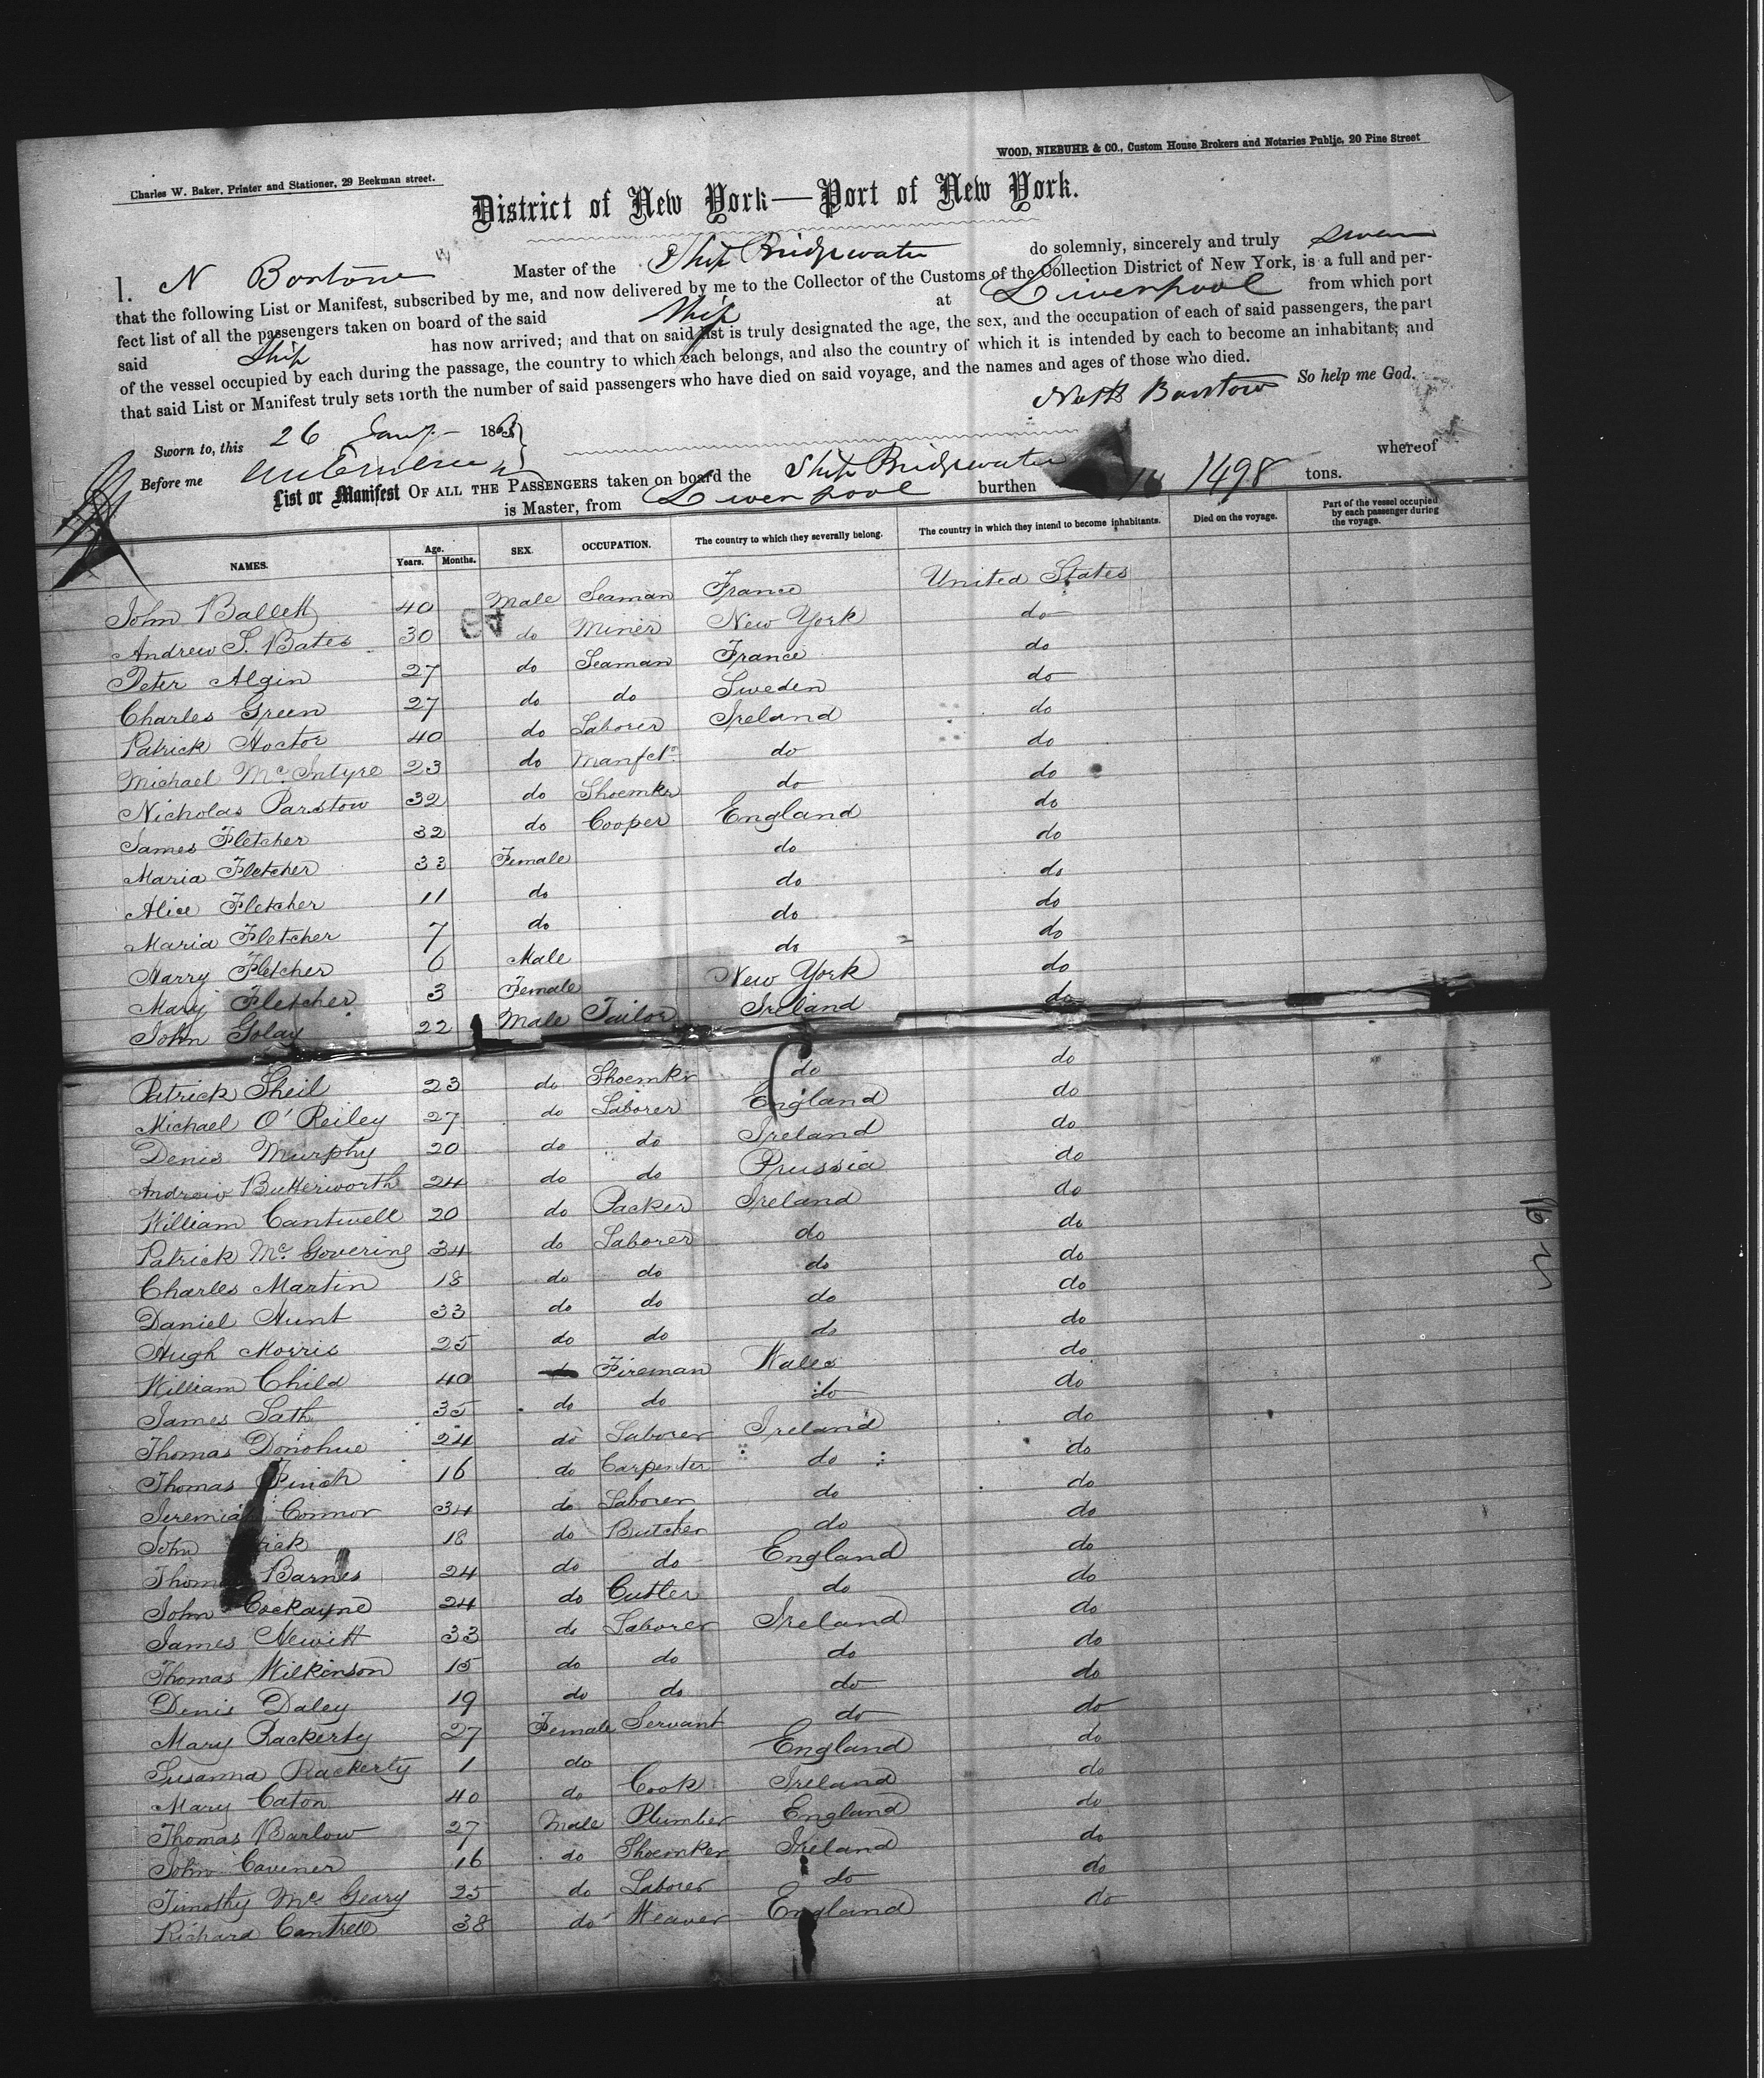 WOOD, NIEBUHR & CO., Custom House Brokers and Notaries Public, 20 Pine Street
Charles W. Baker, Printer and Stationer, 29 Beekman street.
District of New York—Port of New York.
I. N Barstow Master of the Ship Bridgewater do solemnly, sincerely and truly swear
that the following List or Manifest, subscribed by me, and now delivered by me to the Collector of the Customs of the Collection District of New York, is a full and per-
fect list of all the passengers taken on board of the said Ship at Liverpool from which port
said Ship has now arrived; and that on said list is truly designated the age, the sex, and the occupation of each of said passengers, the part
of the vessel occupied by each during the passage, the country to which each belongs, and also the country of which it is intended by each to become an inhabitant; and
that said List or Manifest truly sets forth the number of said passengers who have died on said voyage, and the names and ages of those who died.
So help me God.
Barstow
Sworn to, this 26 Jany 1863
Before me
List or Manifest OF ALL THE PASSENGERS taken on board the Ship Bridgewater whereof
is Master, from Liverpool burthen 1498 tons.
NAMES. Age. Years. Months. SEX. OCCUPATION. The country to which they severally belong. The country in which they intend to become inhabitants. Died on the voyage. Part of the vessel occupied by each passenger during the voyage.
John Ballett 40 Male Seaman France United States
Andrew S. Bates 30 do Miner New York do
Peter Algin 27 do Seaman France do
Charles Green 27 do do Sweden do
Patrick Hoctor 40 do Laborer Ireland do
Michael Mc Intyre 23 do Manfctr do do
Nicholas Parstow 32 do Shoemkr do do
James Fletcher 32 do Cooper England do
Maria Fletcher 33 Female do do
Alice Fletcher 11 do do do
Maria Fletcher 7 do do do
Harry Fletcher 6 Male do do
Mary Fletcher 3 Female New York do
John 22 Male Tailor Ireland do
Patrick Sheil 23 do Shoemkr do do
Michael O'Reiley 27 do Laborer England do
Denis Murphy 20 do do Ireland do
Andrew Butterworth 24 do do Prussia do
William Cantwell 20 do Packer Ireland do
Patrick Mc Govering 34 do Laborer do do
Charles Martin 18 do do do do
Daniel Hunt 33 do do do do
Hugh Morris 25 do do do do
William Child 40 do Fireman Wales do
James 35 do do do do
Thomas Donohue 24 do Laborer Ireland do
Thomas Finch 16 do Carpenter do do
Jeremiah Connor 34 do Laborer do do
John 18 do Butcher do do
Thomas Barnes 24 do do England do
John Cockayne 24 do Cutler do do
James Hewitt 33 do Laborer Ireland do
Thomas Wilkinson 15 do do do do
Denis Daley 19 do do do do
Mary Rackerty 27 Female Servant do do
Susanna Rackerty 1 do England do
Mary Caton 40 do Cook Ireland do
Thomas Barlow 27 Male Plumber England do
John Cavener 16 do Shoemker Ireland do
Timothy Mc Geary 25 do Laborer do do
Richard Cantrell 38 do Weaver England do